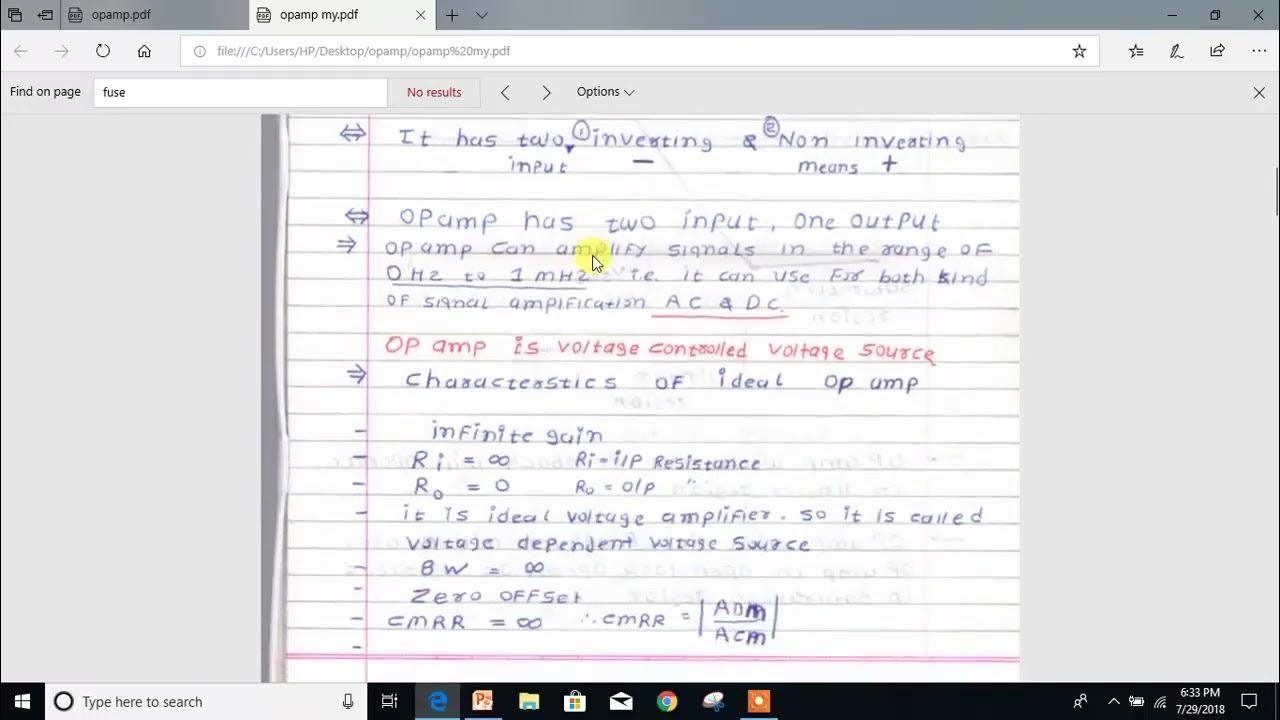 opamp.pdf
opamp my.pdf
file:///C:/Users/HP/Desktop/opamp/opamp%20my.pdf
Find on page
fuse
No results
Options
⇔ It has two ① inverting & ② Non inverting
input − means +
⇔ OP amp has two input, one output
⇒ OP amp can amplify signals in the range OF
0 Hz to 1 mHz - i.e. it can use For both kind
OF signal amplification AC & DC.
OP amp is voltage controlled voltage source
⇒ characterstics OF ideal op amp
- infinite gain
- Ri = ∞ Ri = i/p Resistance
- Ro = 0 Ro = o/p "
- it is ideal voltage amplifier. so it is called
voltage dependent voltage source
- BW = ∞
- Zero OFFSet
- CMRR = ∞ ∴ CMRR = | ADM
ACM |
-
Type here to search
6:33 PM
7/29/2018